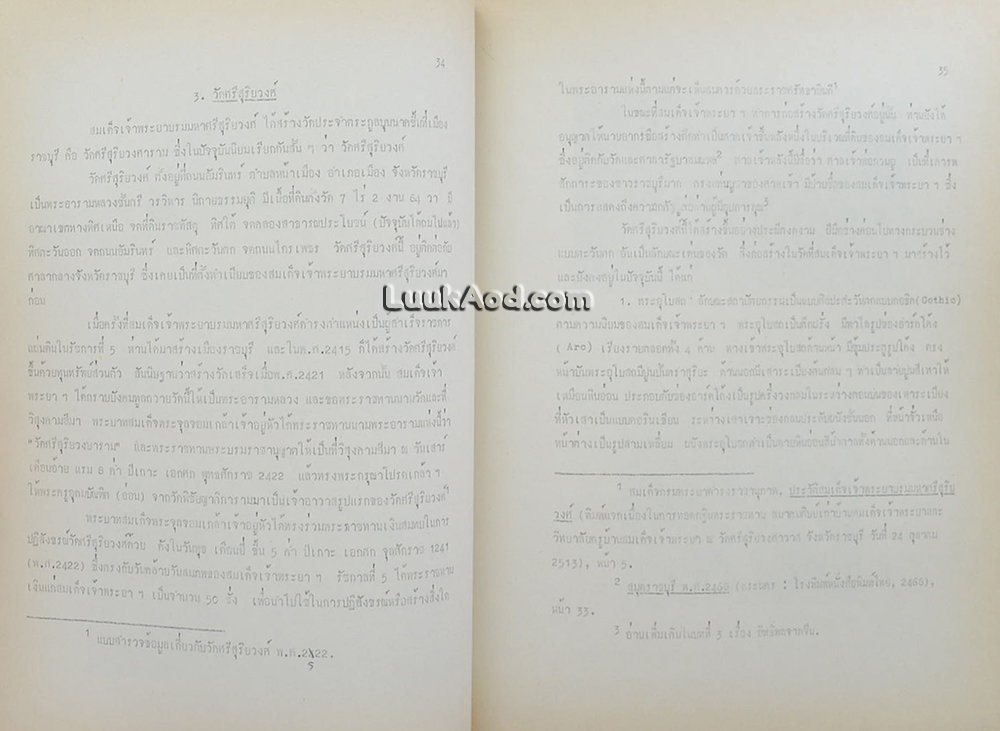 34
3. วัดศรีสุริยวงศ์
สมเด็จเจ้าพระยาบรมมหาศรีสุริยวงศ์ ได้สร้างวัดประจำตระกูลบุนนาคขึ้นที่เมือง
ราชบุรี คือ วัดศรีสุริยวงศาราม ซึ่งในปัจจุบันนิยมเรียกกันสั้น ๆ ว่า วัดศรีสุริยวงศ์
วัดศรีสุริยวงศ์ ตั้งอยู่ที่ถนนอัมรินทร์ ตำบลหน้าเมือง อำเภอเมือง จังหวัดราชบุรี
เป็นพระอารามหลวงชั้นตรี วรวิหาร นิกายธรรมยุติ มีเนื้อที่ตั้งวัด 7 ไร่ 2 งาน 64 วา มี
อาณาเขตทางทิศเหนือ จดที่ดินราชพัสดุ ทิศใต้ จดคลองสาธารณประโยชน์ (ปัจจุบันได้ถมไปแล้ว)
ทิศตะวันออก จดถนนอัมรินทร์ และทิศตะวันตก จดถนนไกรเพชร วัดศรีสุริยวงศ์นี้ อยู่ติดต่อกับ
ศาลากลางจังหวัดราชบุรี ซึ่งเคยเป็นที่ตั้งทำเนียบของสมเด็จเจ้าพระยาบรมมหาศรีสุริยวงศ์มา
ก่อน
เมื่อครั้งที่สมเด็จเจ้าพระยาบรมมหาศรีสุริยวงศ์ดำรงตำแหน่งเป็นผู้สำเร็จราชการ
แผ่นดินในรัชกาลที่ 5 ท่านได้มาสร้างเมืองราชบุรี และในพ.ศ.2415 ก็ได้สร้างวัดศรีสุริยวงศ์
ขึ้นด้วยทุนทรัพย์ส่วนตัว สันนิษฐานว่าสร้างวัดเสร็จเมื่อพ.ศ.2421 หลังจากนั้น สมเด็จเจ้า
พระยา ฯ ได้กราบบังคมทูลถวายวัดนี้ให้เป็นพระอารามหลวง และขอพระราชทานนามวัดและที่
วิสุงคามสีมา พระบาทสมเด็จพระจุลจอมเกล้าเจ้าอยู่หัวได้พระราชทานนามพระอารามแห่งนี้ว่า
"วัดศรีสุริยวงษาราม" และพระราชทานพระบรมราชานุญาตให้เป็นที่วิสุงคามสีมา ณ วันเสาร์
เดือนอ้าย แรม 8 ค่ำ ปีเถาะ เอกศก พุทธศักราช 2422 แล้วทรงพระกรุณาโปรดเกล้า ฯ
ให้พระครูอุดมบัณฑิต (อ่อน) จากวัดพิชัยญาติการามมาเป็นเจ้าอาวาสรูปแรกของวัดศรีสุริยวงศ์1
พระบาทสมเด็จพระจุลจอมเกล้าเจ้าอยู่หัวได้ทรงร่วมพระราชทานเงินสมทบในการ
ปฏิสังขรณ์วัดศรีสุริยวงศ์ด้วย ดังในวันพุธ เดือนยี่ ขึ้น 5 ค่ำ ปีเถาะ เอกศก จุลศักราช 1241
(พ.ศ.2422) ซึ่งตรงกับวันคล้ายวันสมภพของสมเด็จเจ้าพระยา ฯ รัชกาลที่ 5 ได้พระราชทาน
เงินแก่สมเด็จเจ้าพระยา ฯ เป็นจำนวน 50 ชั่ง เพื่อนำไปใช้ในการปฏิสังขรณ์หรือสร้างสิ่งใด
1 แบบสำรวจข้อมูลเกี่ยวกับวัดศรีสุริยวงศ์ พ.ศ.2522.
35
ในพระอารามแห่งนี้ตามแต่จะเห็นสมควรด้วยพระราชศรัทธายินดี1
ในขณะที่สมเด็จเจ้าพระยา ฯ ทำการก่อสร้างวัดศรีสุริยวงศ์อยู่นั้น ท่านยังได้
ซึ่งอยู่ติดกับวัดและศาลารัฐบาลมณฑล2
สักการะของชาวราชบุรีมาก ตรงเหนือประตูของศาลเจ้า มีป้ายชื่อของสมเด็จเจ้าพระยา ฯ ซึ่ง
เป็นการแสดงถึงความกตัญญูต่อท่านผู้มีอุปการคุณ3
วัดศรีสุริยวงศ์นี้ได้สร้างขึ้นอย่างประณีตงดงาม ฝีมือช่างค่อนไปทางกระบวนช่าง
แบบตะวันตก อันเป็นลักษณะเด่นของวัด สิ่งก่อสร้างในวัดที่สมเด็จเจ้าพระยา ฯ มาสร้างไว้
และยังคงอยู่ในปัจจุบันนี้ ได้แก่
LuukAod.com
1. พระอุโบสถ ลักษณะสถาปัตยกรรมเป็นแบบศิลปะตะวันตกแบบกอธิค (Gothic)
ตามความนิยมของสมเด็จเจ้าพระยา ฯ พระอุโบสถเป็นตึกฝรั่ง มีพาไลรูปอาร์คโค้ง
(Arc) เรียงรายตลอดทั้ง 4 ด้าน ทางเข้าพระอุโบสถด้านหน้า มีซุ้มประตูรูปโค้ง ตรง
หน้าบันพระอุโบสถมีปูนปั้นตราสุริยะ ด้านนอกมีเสาระเบียงกลม ๆ ทาเป็นลายปูนสีเทาให้
เหมือนหินอ่อน ประกอบกับช่องอาร์คโค้งเป็นรูปครึ่งวงกลมในระหว่างตอนบนของเสาระเบียง
หน้าต่างเป็นรูปสามเหลี่ยม ผนังพระอุโบสถทำเป็นลายหินอ่อนสีน้ำตาลทั้งด้านนอกและด้านใน
1 สมเด็จกรมพระยาดำรงราชานุภาพ, ประวัติสมเด็จเจ้าพระยาบรมมหาศรีสุริย
วงศ์ (พิมพ์แจกเนื่องในการทอดกฐินพระราชทาน สมาคมศิษย์เก่าบ้านสมเด็จเจ้าพระยาและ
วิทยาลัยครูบ้านสมเด็จเจ้าพระยา ณ วัดศรีสุริยวงศาวาส จังหวัดราชบุรี วันที่ 24 ตุลาคม
2513), หน้า 5.
2 สมุดราชบุรี พ.ศ.2468 (พระนคร : โรงพิมพ์หนังสือพิมพ์ไทย, 2468),
หน้า 33.
3 อ่านเพิ่มเติมในบทที่ 3 เรื่อง อิทธิพลจากจีน.